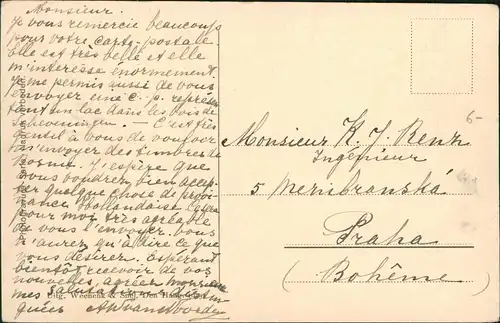 Monsieur.
Je vous remercie beaucoup
pour votre carte-postale.
Elle est très belle et elle
m'interesse enormement.
Je me permis aussi de vous
envoyer une c. p. représen
tant un lac dans les bois de
C'est très
gentil à vous de vouloir
m'envoyer des timbres de
Bosnie. J'espère que
vous voudrez bien accep
ter quelque chose de provi
nance hollandaise. Cela
pour moi très agréable
de vous l'envoyer. Vous
n'aurez qu'à dire ce que
vous désirez. Espérant
bientôt recevoir de vos
nouvelles, agréez monsieur
mes salutations distin
guées
Uitg. Weenenk & Snel, Den Haag
Monsieur K. J. Renz
Ingénieur
5 Membranská
Praha
(Bohême)
6-